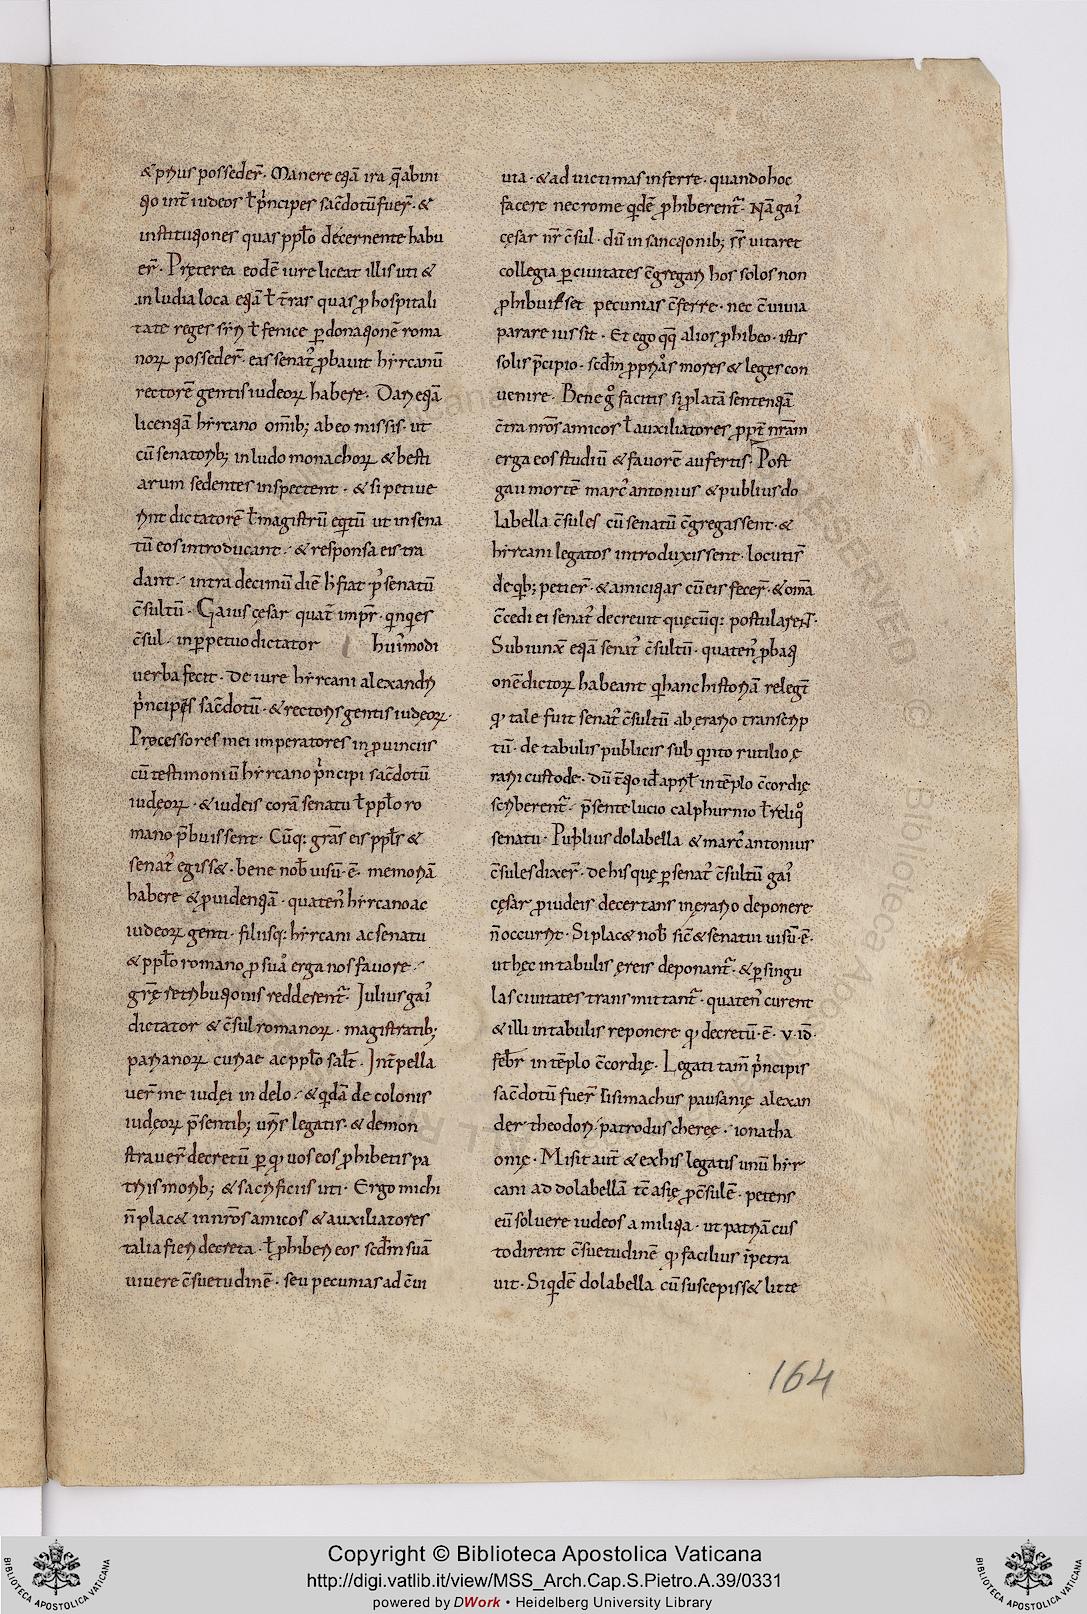 & prius posseder̄. Manere eqā ira q̄ abini
qo int̄ iudeos ł p̄ncipes sac̄dotū fuer̄. &
instituqones quas ppl̄o decernente habu
er̄. Pręterea eodē iure liceat illis uti &
in ludia loca eqā ł t̄ras quas p hospitali
tate reges sirii ł fenice p donaqonē roma
noꝝ posseder̄. eas senat᷒ pbauit hircanū
rectorē gentis iudeoꝝ habere. Dari eqā
licenqā hircano om̄ib; ab eo missis. ut
cū senatorib; in ludo monachoꝝ & besti
arum sedentes inspectent. & si petiue
rint dictatorē ł magistrū eqtū ut in sena
tū eos introducant. & responsa eis tra
dant. intra decimū diē h̄ fiat p᷒ senatū
c̄sultū. Gaius cęsar quat̄ imp̄r. qnqes
c̄sul. in ppetuo dictator hui᷒modi
uerba fecit. De iure hircani alexandri
p̄ncipis sac̄dotū. & rectoris gentis iudęoꝝ.
Pręcessores mei imperatores in puinciis
cū testimoniū hircano p̄ncipi sac̄dotū
iudęoꝝ. & iudeis corā senatu ł ppl̄o ro
mano p̄buissent. Cūq: gr̄as eis ppl̄s &
senat᷒ egiss&. bene nob̄ uisū. ē. memoriā
habere & puidenqā. quaten᷒ hircano ac
iudeoꝝ genti. filiisq: hircani ac senatu
& ppl̄o romano p sua erga nos fauore.
gr̄ę retribuqonis redderent᷒. Julius gai᷒
dictator & c̄sul romanoꝝ. magistratib;
parianoꝝ curiae ac ppl̄o salt̄. Int̄pella
uer̄ me iudei in delo. & qdā de colonis
iudeoꝝ p̄sentib; uris legatis. & demon
strauer̄ decretū p qđ uos eos phibetis pa
triis morib; & sacrificiis uti. Ergo michi
n̄ plac& in nr̄os amicos & auxiliatores
talia fieri decreta. ł phiberi eos scdm̄ suā
uiuere c̄suetudinē. seu pecunias ad c̄ui
uia. & ad uictimas inferre. quando hoc
facere nec rome qdē phiberent᷒. Nā gai᷒
cęsar nr̄ c̄sul. dū in sancqonib; sr̄ uitaret
collegia p ciuitates c̄gregari hos solos non
phibuisset pecunias c̄ferre. nec c̄uiuia
parare iussit. Et ego qq alios phibeo. istis
solis p̄cipio. scdm̄ pprios mores & leges con
uenire. Bene g᷒ facitis si platā sentenqā
c̄tra nr̄os amicos ł auxiliatores ppt̄ nr̄am
erga eos studiū & fauorē aufertis. Post
gaii mortē marc᷒ antonius & publius do
labella c̄sules cū senatū c̄gregassent. &
hircani legatos introduxissent. locutis᷒
de qb; petier̄. & amiciqas cū eis fecer̄. & om̄a
c̄cedi ei senat᷒ decreuit quęcūq: postularent.
Subiunx eqā senat᷒ c̄sultū. quaten᷒ pbaq
onē dictoꝝ habeant q hanc historiā relegt̄
qđ tale fuit senat᷒ c̄sultū ab ęrario transcrip
tū. de tabulis publicis sub qinto rutilio ę
rarii custode. dū t̄qo id april̄ in tēplo c̄cordię
scriberent᷒. p̄sente lucio calphurnio ł reliqo
senatu. Publius dolabella & marc᷒ antonius
c̄sules dixer̄. De his quę p senat᷒ c̄sultū gai᷒
cęsar p iudeis decertans in ęrario deponere
n̄ occurrit. Si plac& nob̄ sic̄ & senatui uisū. ē.
ut hęc in tabulis ęreis deponant᷒. & p singu
las ciuitates transmittant᷒. quaten᷒ curent
& illi in tabulis reponere qđ decretū. ē. v. id̄.
febr̄ in tēplo c̄cordię. Legati tam̄ p̄ncipis
sac̄dotū fuer̄ lisimachus pausanię alexan
der theodori. patrodus cherę. ionatha
onię. Misit aut̄ & ex his legatis unū hir
cani ad dolabellā tc̄ asię pc̄sulē. petens
eū soluere iudeos a miliqa. ut patriā cus
todirent c̄suetudinē qđ facilius īpetra
uit. Siqdē dolabella cū suscepiss& litte
164
Copyright © Biblioteca Apostolica Vaticana
http://digi.vatlib.it/view/MSS_Arch.Cap.S.Pietro.A.39/0331
powered by DWork • Heidelberg University Library